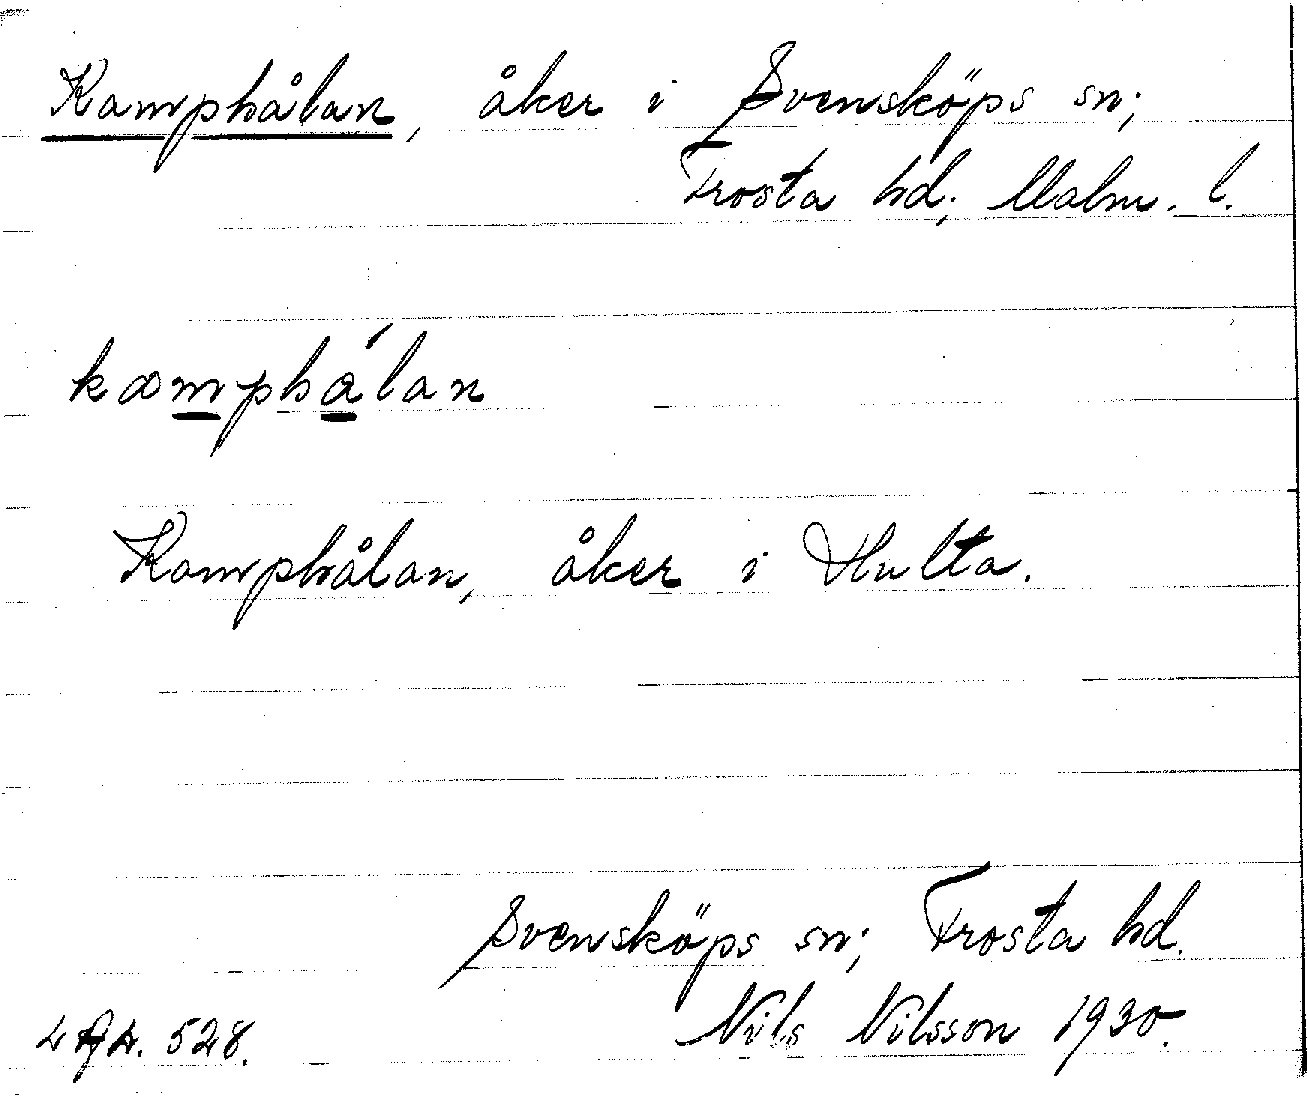 Kamphålan, åker i Svensköps sn;
Frosta hd; Malm. l.
kamphálan
Kamphålan, åker i Hulta.
Svensköps sn; Frosta hd.
Nils Nilsson 1930.
528.